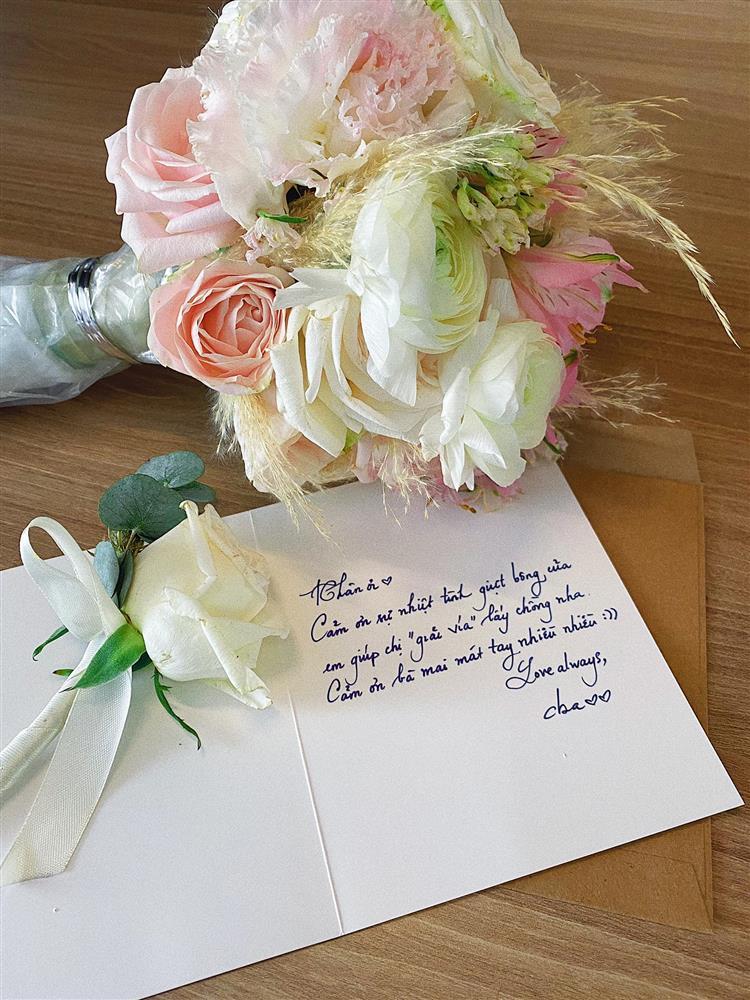 Nhân ơi ♡
Cảm ơn sự nhiệt tình giựt bông của
em giúp chị "giải vía" lấy chồng nha.
Cảm ơn bà mai mát tay nhiều nhiều :))
Love always,
cha ♡♡